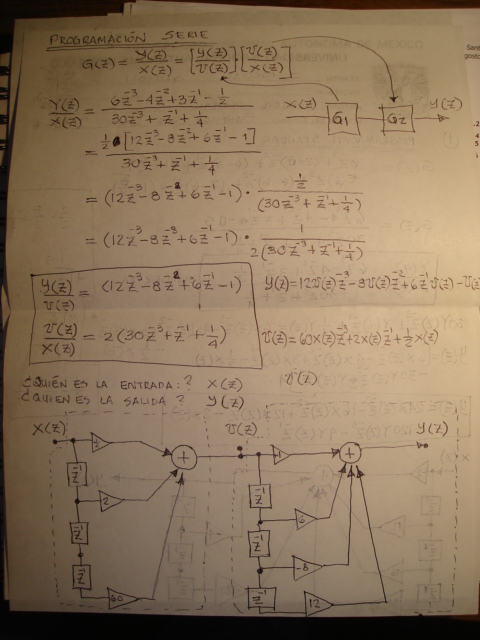 PROGRAMACIÓN SERIE
G(z) = Y(z)/X(z) = [Y(z)/U(z)]·[U(z)/X(z)]
Y(z)/X(z) = (6z⁻³-4z⁻²+3z⁻¹-1/2)/(30z⁻³+z⁻¹+1/4)
X(z) G1 G2 Y(z)
= 1/2[12z⁻³-8z⁻²+6z⁻¹-1]/(30z⁻³+z⁻¹+1/4)
= (12z⁻³-8z⁻²+6z⁻¹-1)·(1/2)/(30z⁻³+z⁻¹+1/4)
= (12z⁻³-8z⁻³+6z⁻¹-1)·1/2(30z⁻³+z⁻¹+1/4)
Y(z)/U(z) = (12z⁻³-8z⁻²+6z⁻¹-1) Y(z)=12U(z)z⁻³-8U(z)z⁻²+6z⁻¹U(z)-U(z)
U(z)/X(z) = 2(30z⁻³+z⁻¹+1/4) U(z)=60X(z)z⁻³+2X(z)z⁻¹+1/2X(z)
¿QUIÉN ES LA ENTRADA:? X(z) U(z)
¿QUIEN ES LA SALIDA? Y(z)
X(z) U(z) Y(z)
+ -1 +
z⁻¹ 2 z⁻¹ 6
z⁻¹ z⁻¹ -8
z⁻¹ 60 z⁻¹ 12